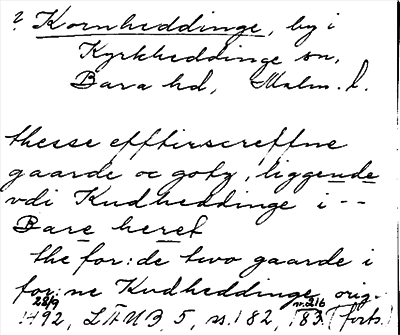 ? Kornheddinge, by i
Kyrkheddinge sn,
Bara hd, Malm. l.
thesse efftirscreffne
gaarde oc gotz, liggende
vdi Kudheddinge i --
Bare heret
the for:de two gaarde i
for:ne Kudheddinge orig.
28/9 nr 216
1492, LÄUB 5, s. 182, (83) (forts.)